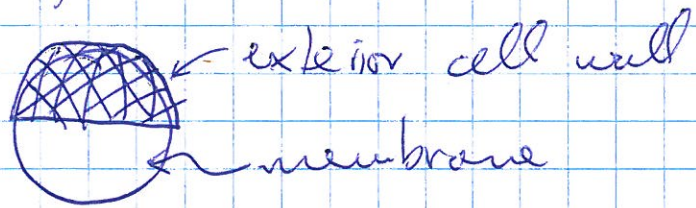 exterior cell wall
membrane